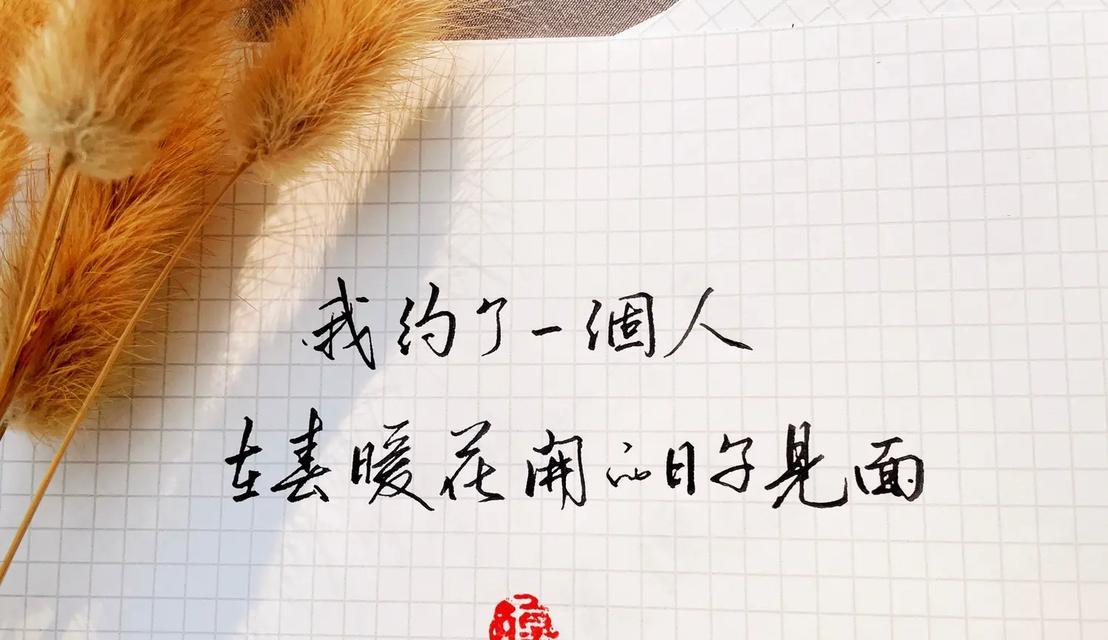 我约了一個人
在春暖花開的日子見面